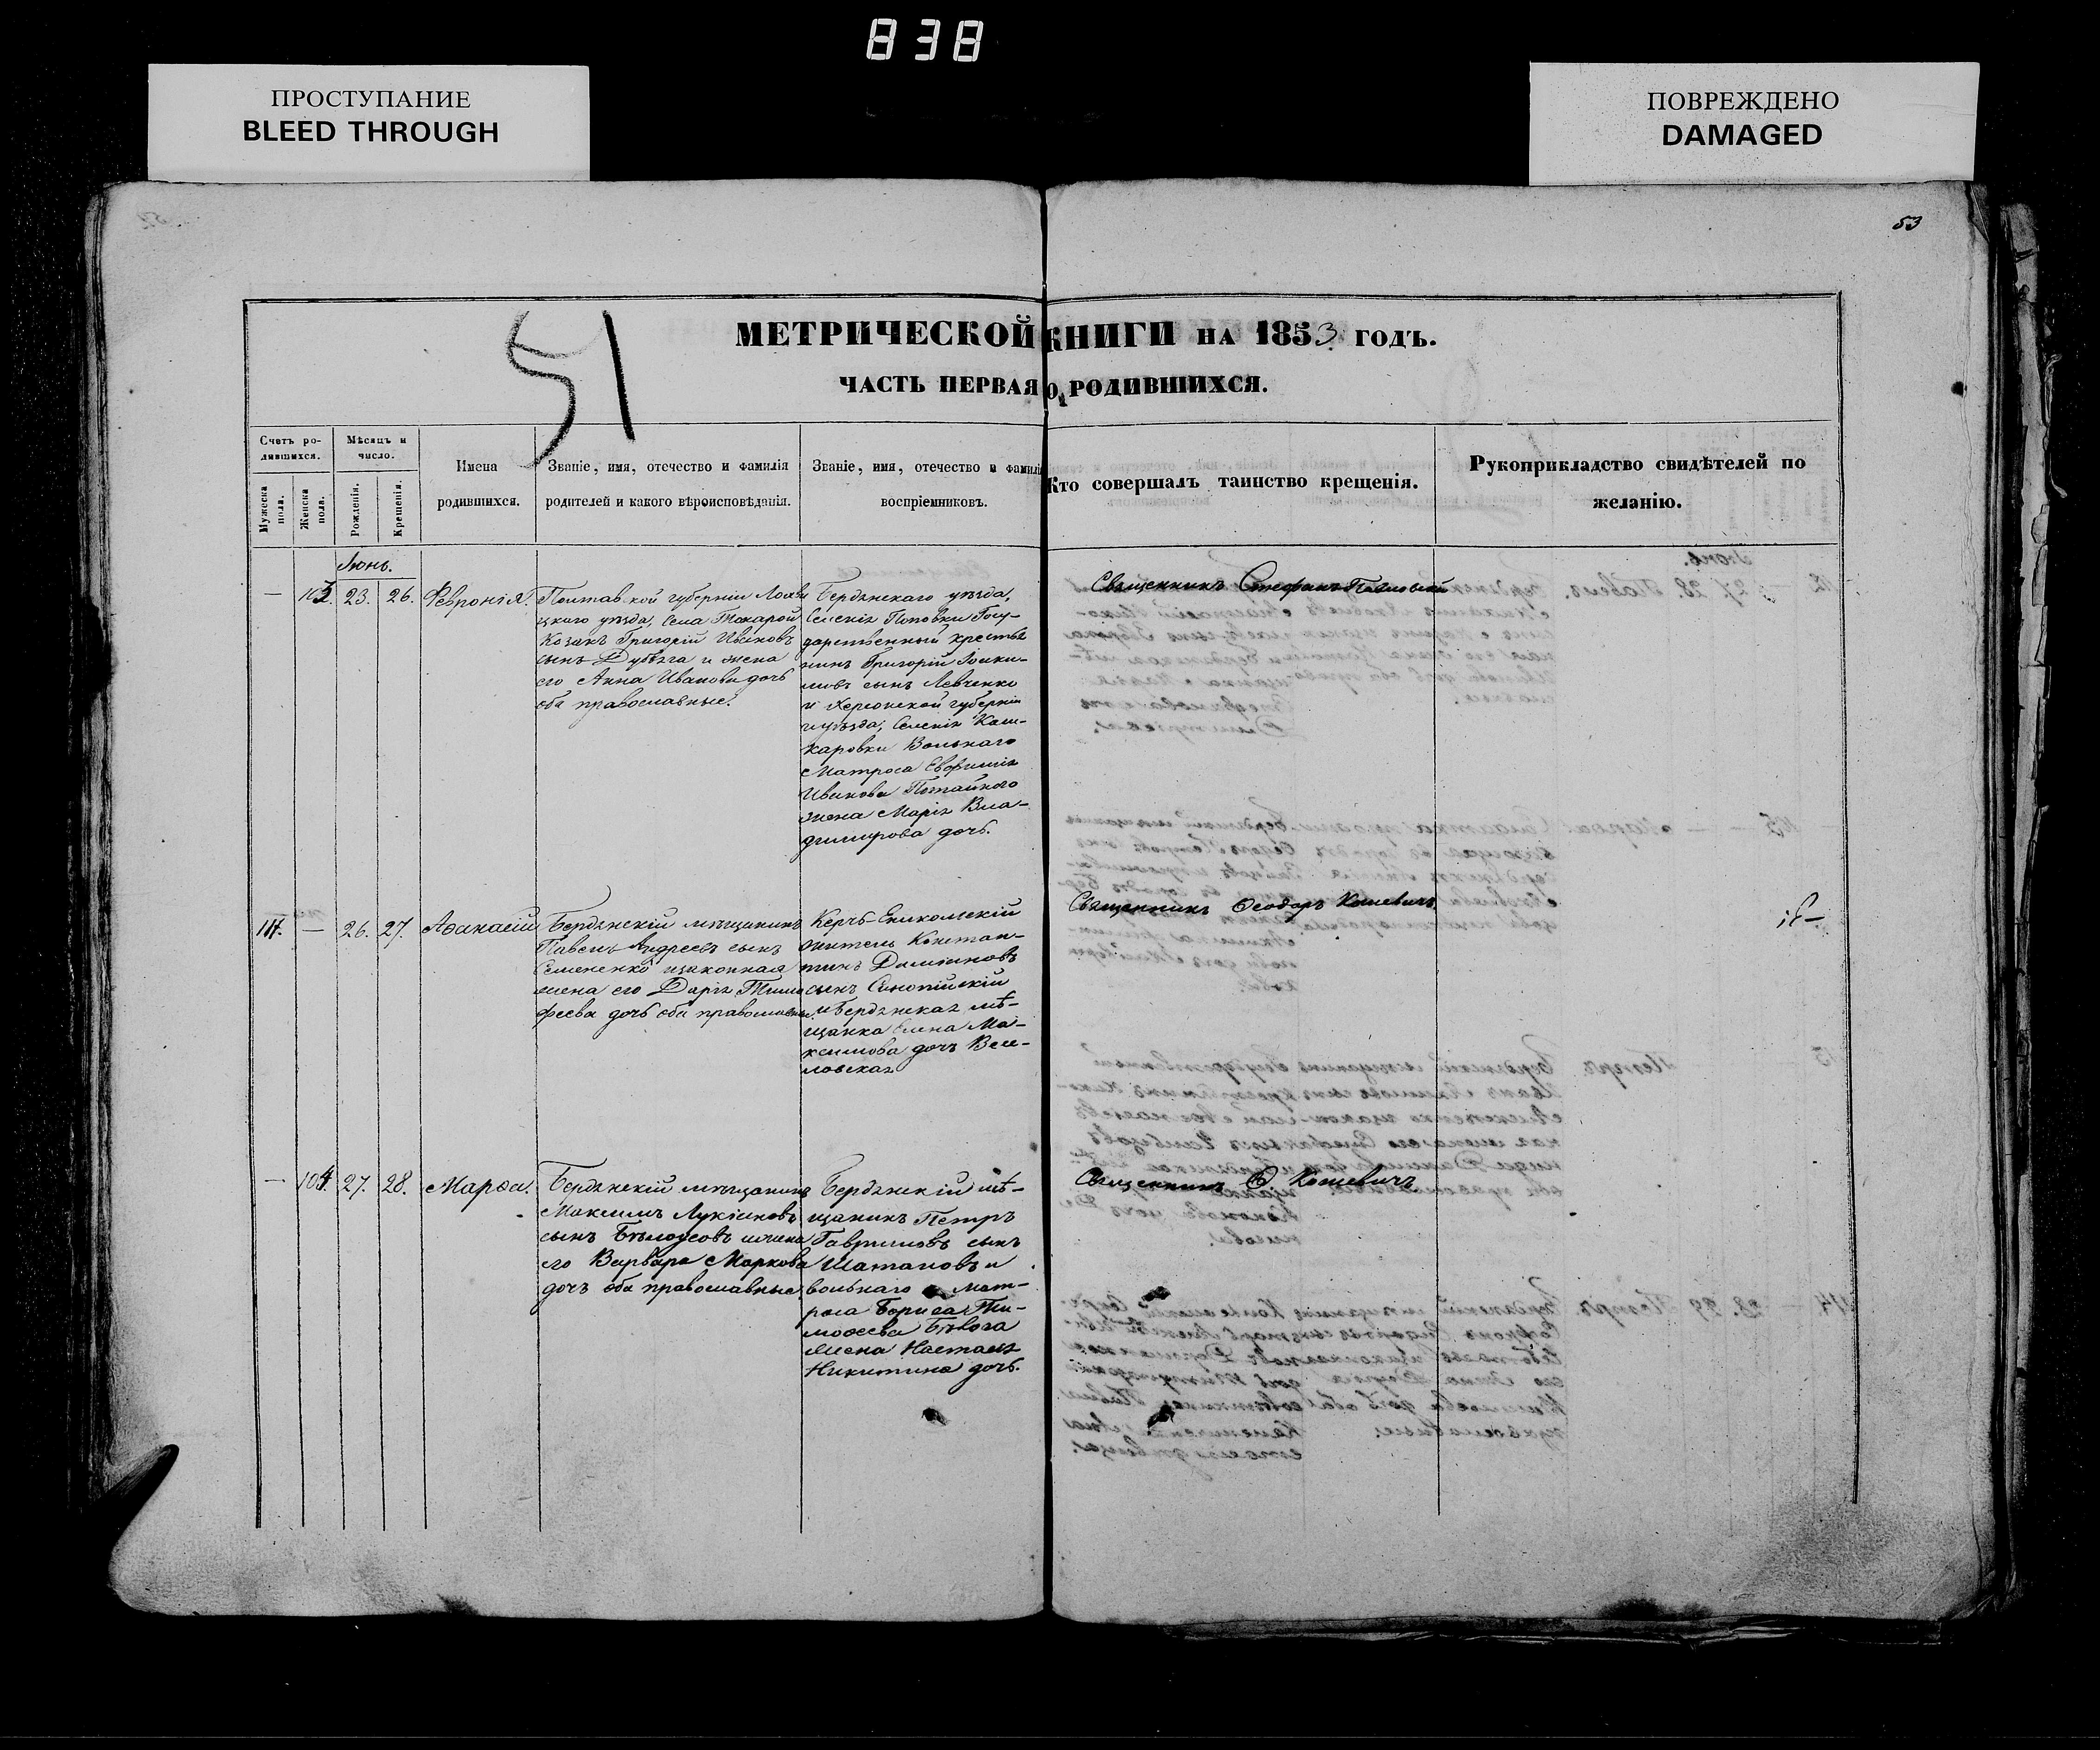 838
ПРОСТУПАНИЕ
BLEED THROUGH
ПОВРЕЖДЕНО
DAMAGED
53
51
МЕТРИЧЕСКОЙ КНИГИ НА 1853 ГОДЪ.
ЧАСТЬ ПЕРВАЯ О РОДИВШИХСЯ.
Счетъ ро-
дившихся.
Мужеска
пола.
Женска
пола.
Мѣсяцъ и
число.
Рожденія.
Крещенія.
Имена
родившихся.
Званіе, имя, отечество и фамилія
родителей и какого вѣроисповѣданія.
Званіе, имя, отечество и фамилія
воспріемниковъ.
Кто совершалъ таинство крещенія.
Рукоприкладство свидѣтелей по
желанію.
Іюнь.
— 103. 23. 26. Февронія.
Полтавской губерніи Лохви
цкаго уѣзда, Села Токарой
Козакъ Григорій Ивановъ
сынъ Дубяга и жена
его Анна Иванова дочь
оба православные.
Бердянскаго уѣзда,
Селенія Поповки Госу-
дарственный крестья
нинъ Григорій Іоаки-
мовъ сынъ Левченко
и Херсонской губерніи
и уѣзда, Селенія Каш-
каровки Вольнаго
Матроса Евфимія
Иванова
жена Марія Вла-
димирова дочь.
Священникъ Стефанъ
111. — 26. 27. Аѳанасій
Бердянскій мѣщанинъ
Павелъ Андреевъ сынъ
Семененко изаконная
жена его Дарія Тимо
феева дочь оба православны.
Керчь-Еникольскій
житель Констан-
тинъ Даміановъ
сынъ Синопійскій
и Бердянская мѣ-
щанка Елена Ма-
ксимова дочь Весе-
ловская
Священникъ Ѳеодоръ Каневичъ.
— 104. 27. 28. Марѳа.
Бердянскій мѣщанинъ
Максимъ Лукіановъ
сынъ Бѣлоусовъ ижена
его Варвара Маркова
дочь оба православные.
Бердянскій мѣ-
щанинъ Петръ
Гавриловъ сынъ
Шаталовъ и
вольнаго мат-
роса Бориса Ти-
моѳеева
жена Настасія
Никитина дочь.
Священникъ Ѳ. Каневичъ